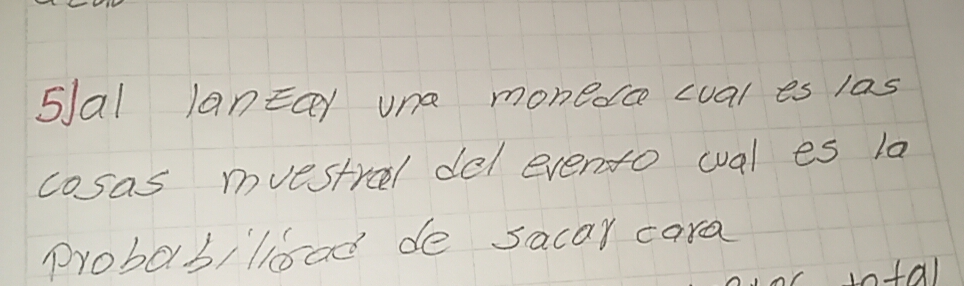 5) al lanzar una moneda cual es las
cosas muestral del evento cual es la
probabilidad de sacar cara
total